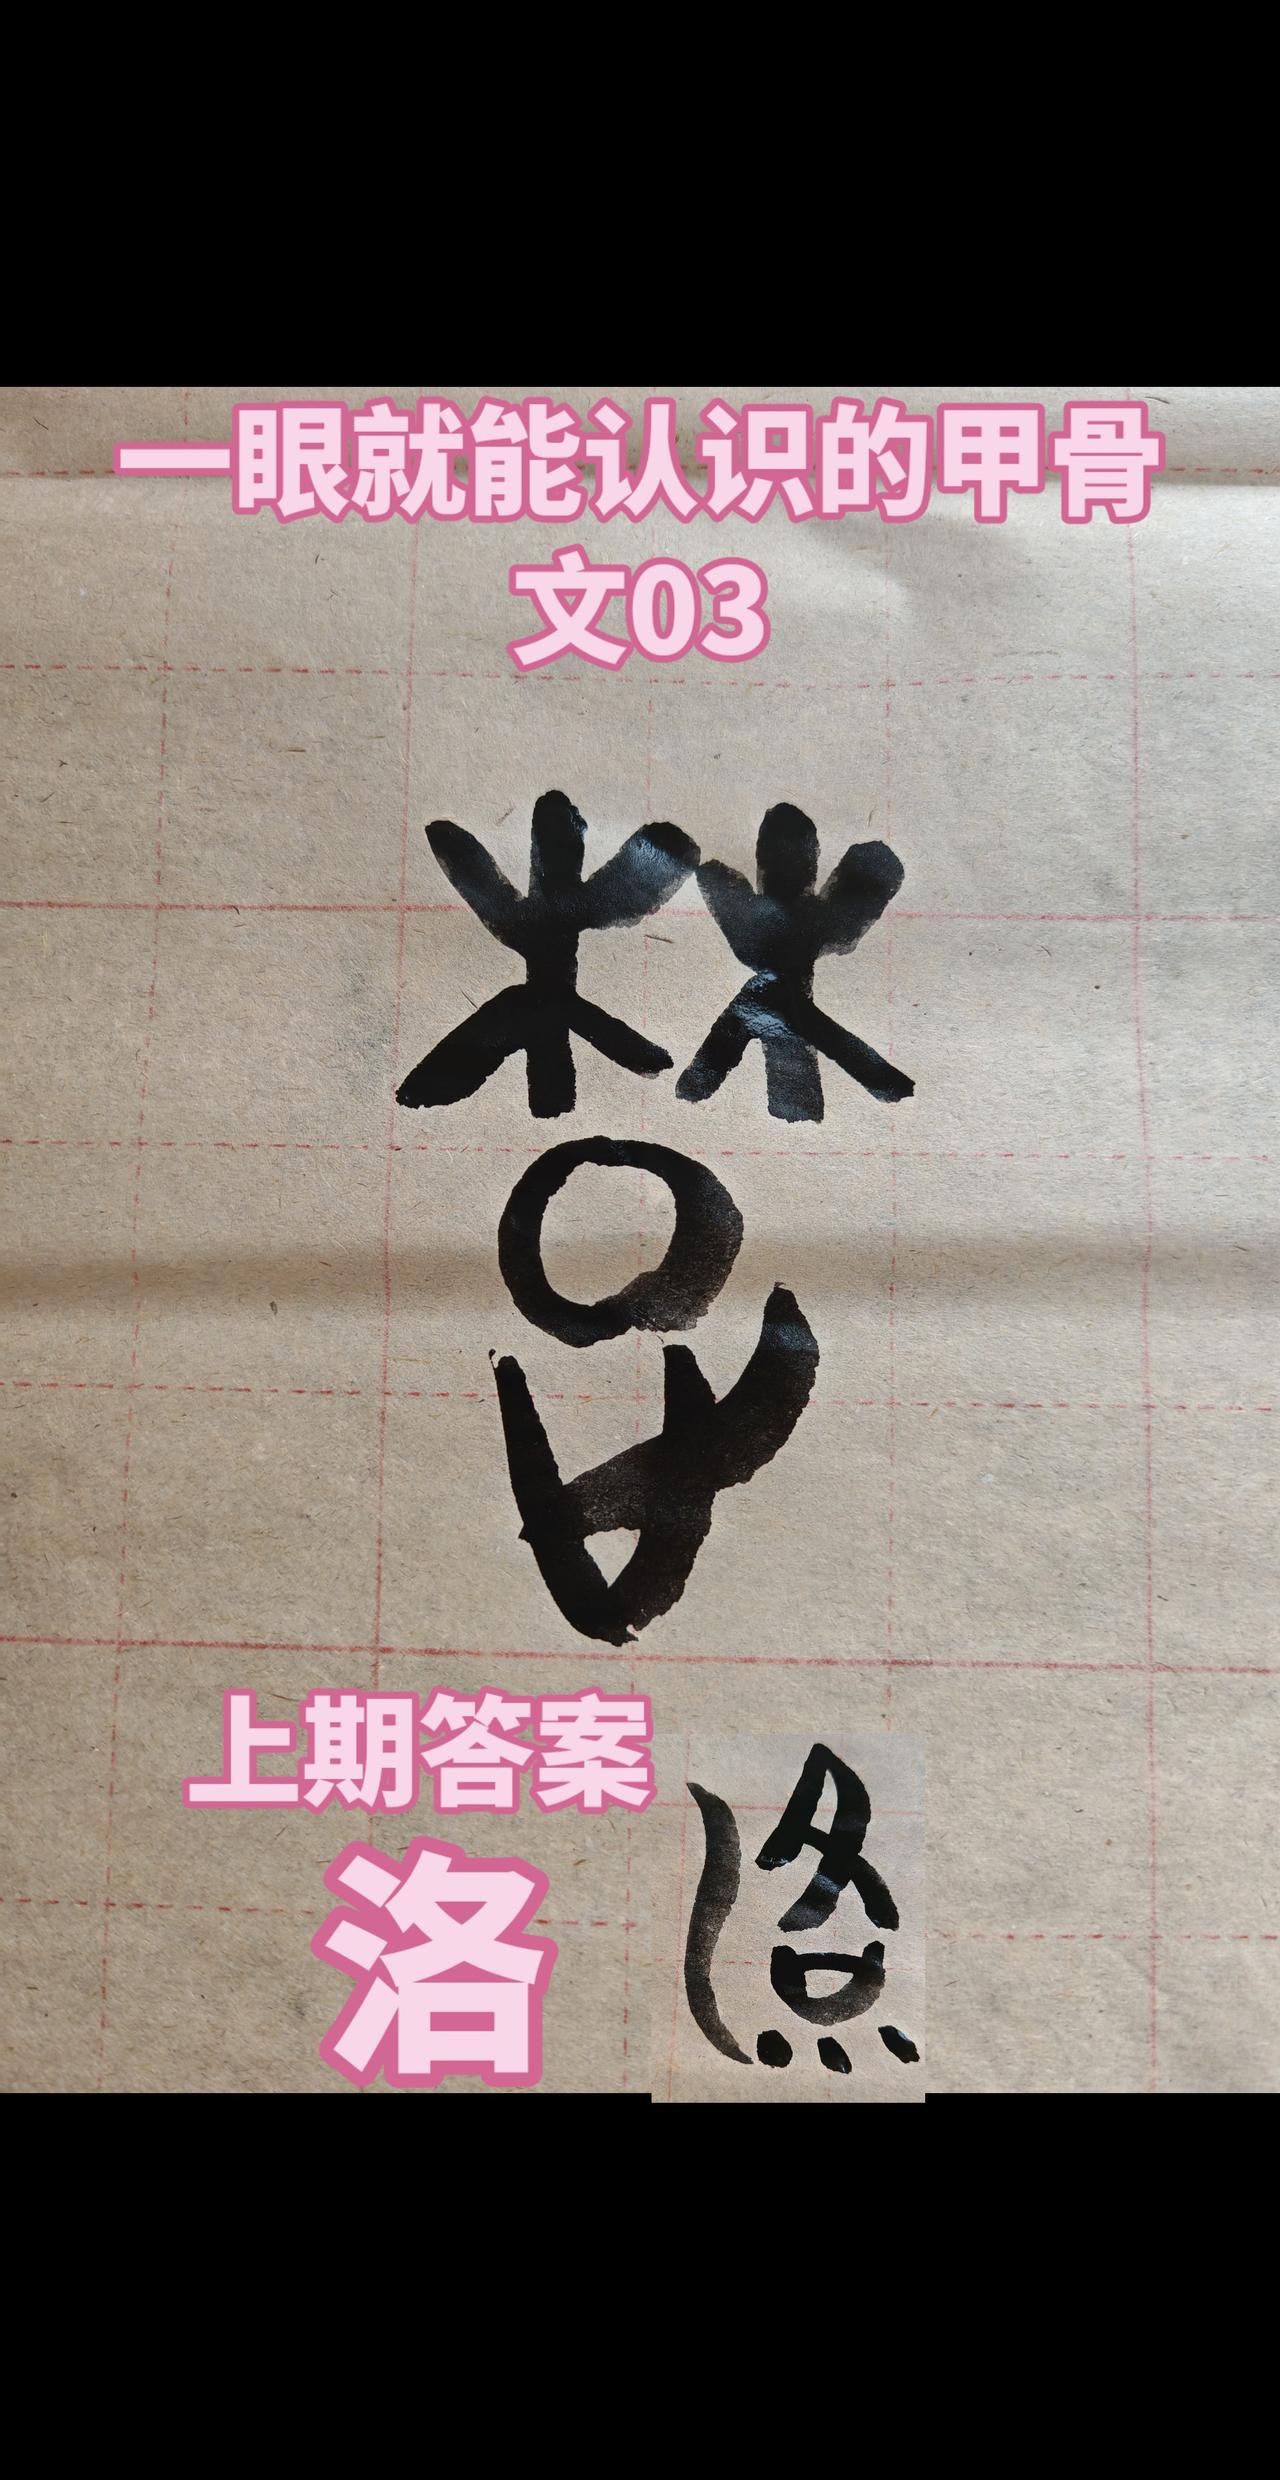 一眼就能认识的甲骨
文03
楚
上期答案
洛
洛